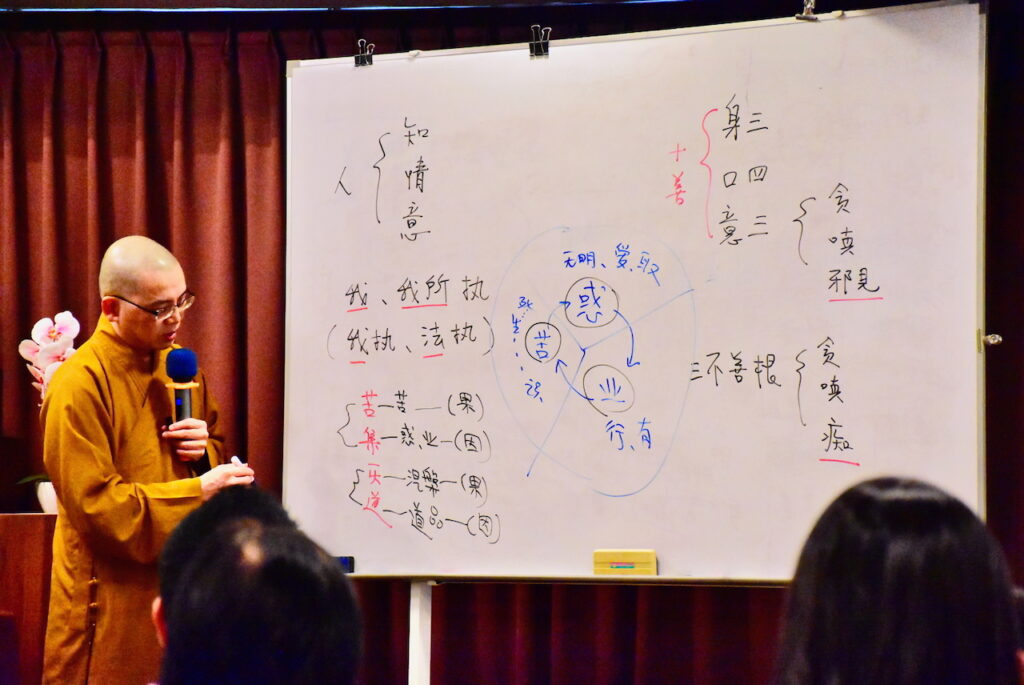 人
知
情
意
我、我所执
(我执、法执)
苦—苦—(果)
集—惑、业—(因)
灭—涅槃—(果)
道—道品—(因)
无明、爱、取
惑
业
行、有
苦
死
生
识
十善
身三
口四
意三
贪
嗔
邪見
三不善根
贪
嗔
痴